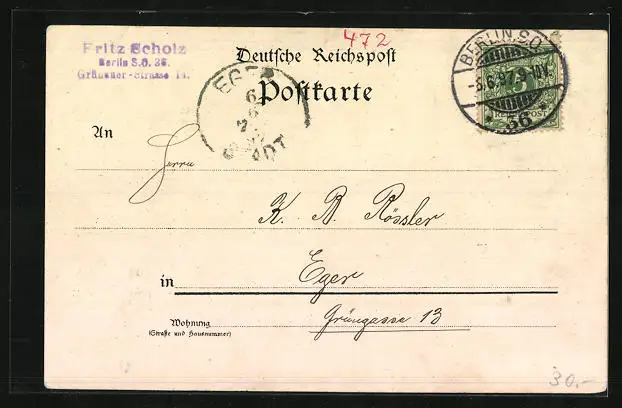 472
Fritz Scholz
Berlin S.O. 36.
Grünauer-Strasse 14.
Deutsche Reichspost
Postkarte
BERLIN S.O.
36
REICHSPOST
EGER
6
STADT
An
Herrn
K. B. Rössler
in Eger
Wohnung Grüngasse 13
(Straße und Hausnummer)
30.-